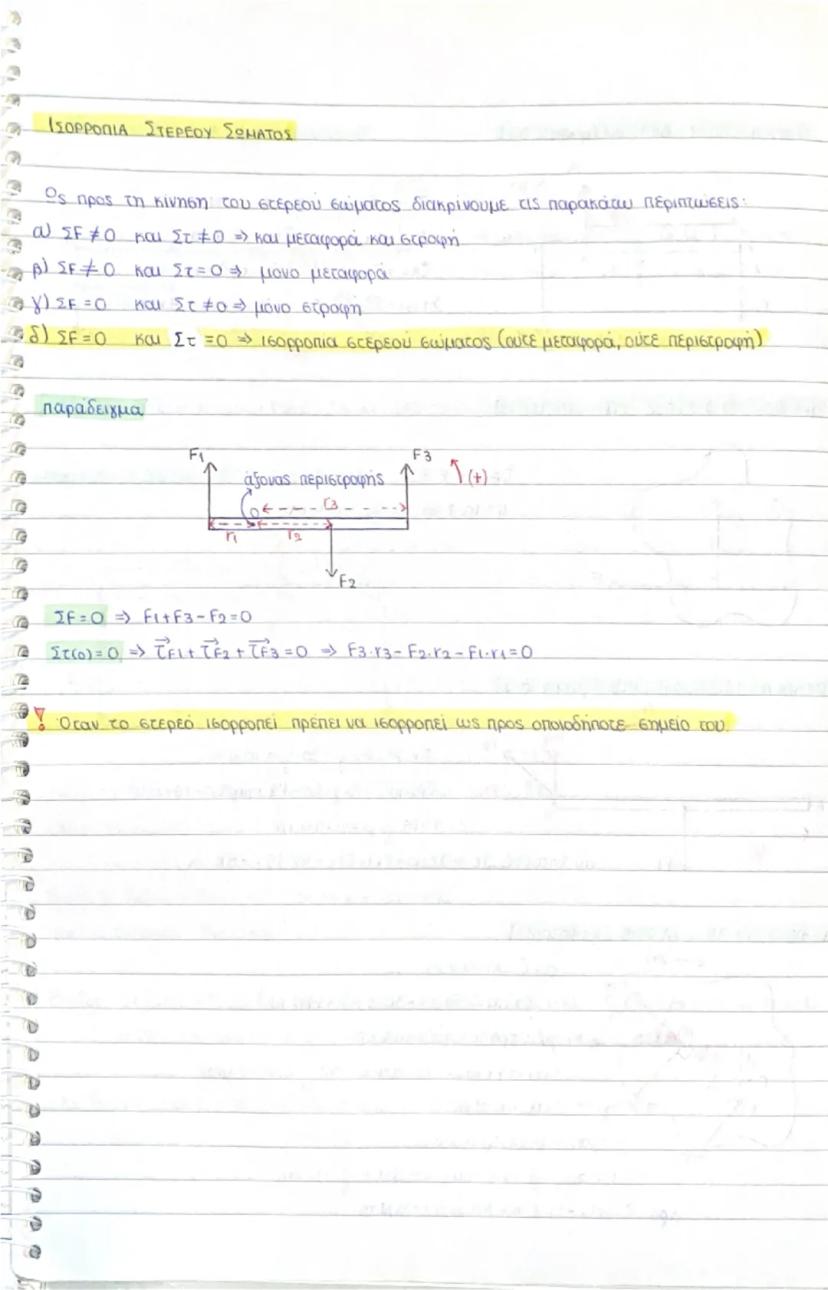 ΙΣΟΡΡΟΠΙΑ ΣΤΕΡΕΟΥ ΣΩΜΑΤΟΣ
Ως προς τη κίνηση του στερεού σώματος διακρίνουμε τις παρακάτω περιπτώσεις:
α) ΣF ≠ 0 και Στ ≠ 0 => και μεταφορά και στροφή
β) ΣF ≠ 0 και Στ = 0 => μόνο μεταφορά
γ) ΣF = 0 και Στ ≠ 0 => μόνο στροφή
δ) ΣF = 0 και Στ = 0 => ισορροπία στερεού σώματος (ούτε μεταφορά, ούτε περιστροφή)
παράδειγμα
F1 F3
άξονας περιστροφής (+)
O r3
r1 r2
F2
ΣF = 0 => F1 + F3 - F2 = 0
Στ(ο) = 0 => τ⃗F1 + τ⃗F2 + τ⃗F3 = 0 => F3·r3 - F2·r2 - F1·r1 = 0
! Όταν το στερεό ισορροπεί πρέπει να ισορροπεί ως προς οποιοδήποτε σημείο του.